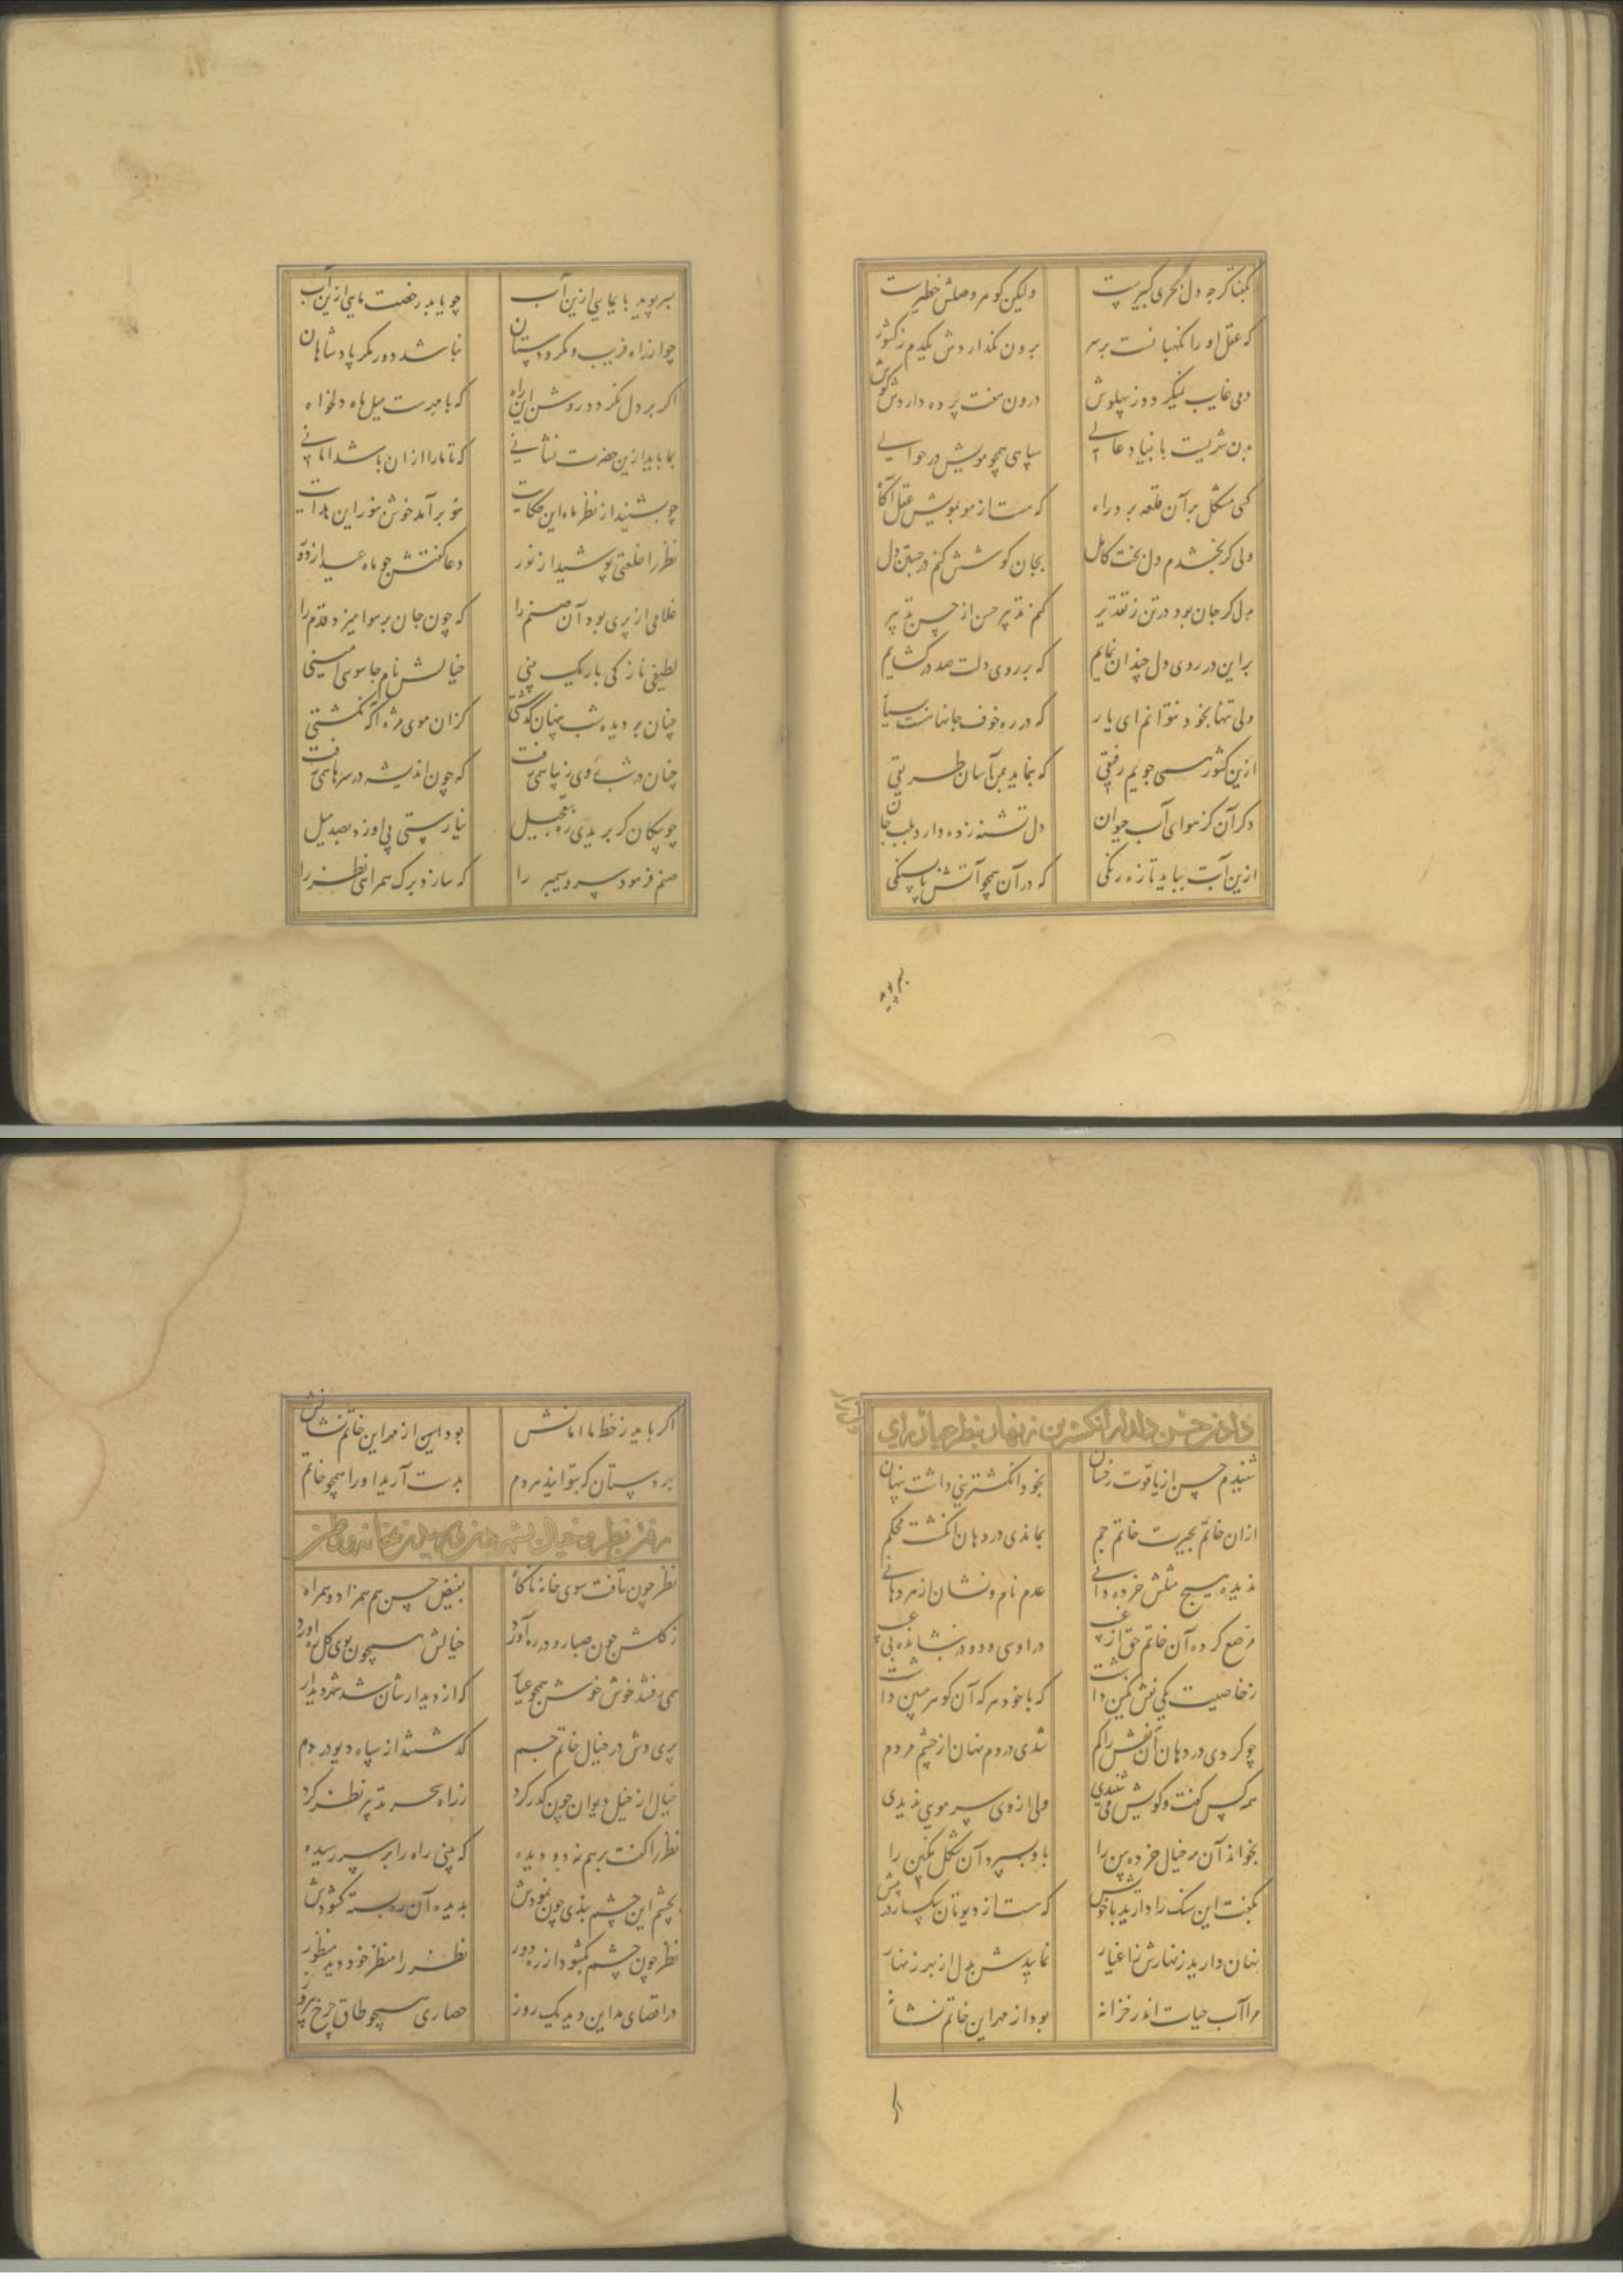 بگفتا گرچه دل بحری کبیرست    ولیکن گوهر وصلش خطیرست
که عقل او را نگهبانست بر سر    برون نگذاردش یکدم ز کشور
دمی غایب نمیگردد ز پهلوش    درون هفت پرده داردش گوش
بدن شهریست با بنیاد عالی    سپاهی همچو مویش در حوالی
کسی مشکل بر آن قلعه برد راه    که هست از مو بمویش عقل آگاه
ولی گر بخشدم دل بخت کامل    بجان کوشش کنم در جستن دل
بدل گر جان بود در تن ز تقدیر    کنم تدبیر حسن از حسن تدبیر
بر این در روی دل چندان نمایم    که بر روی دلت صد در گشایم
ولی تنها بخود نتوانم ای یار    که در ره خوف جانها هست بسیار
ازین کشور همی جویم رفیقی    که بنماید بمن آسان طریقی
دگر آن کز هوای آب حیوان    دل تشنه زده دارد بلب جان
ازین آبت بباید تازه رنگی    که در آن همچو آتش پاسنگی
بسر پوید
بسر پوید بایمایی ازین آب    چو یابد رخصت مایی ازین آب
چو از راه فریب و مکر و دستان    نباشد دور مکر پادشاهان
اگر بر دل نگردد روشن این راه    که با مهرست میل ماه دلخواه
بما باید ازین حضرت نشانی    که تا ما را از آن باشد امانی
چو بشنید از نظر ماه این حکایت    برآمد خوش این هدایت
نظر را خلعتی پوشید از نور    دعا گفتش چو ماه عید از دور
غلامی از پری بود آن صنم را    که چون جان بر هوا میزد قدم را
لطیفی نازکی باریک بینی    خیالش نام جاسوسی امینی
چنان بر دیده شب پنهان گذشتی    کزان موی مژه آگه نگشتی
چنان در شب روی زیبا همی رفت    که چون اندیشه در سرها همی رفت
چو پیکان گر بریدی ره بتعجیل    نیارستی پی او زد بصد میل
صنم فرمود سرو سیمبر را    که سازد برگ همراهی نظر را
دادن حسن دلدار انگشترین نهان بنظر جهان آرای
شنیدم حسن از یاقوت رخشان    بخود انگشترینی داشت پنهان
از آن خاتم بحیرت خاتم جم    بماندی در دهان انگشت محکم
ندیده هیچ مثلش خرده دانی    عدم نام و نشان از هر دهانی
مرصع کرده آن خاتم حق از غیب    در او سی و دو در نشانده بی عیب
ز خاصیت یکی نقش نگین داشت    که با خود هر که آن گوهر مبین داشت
چو کردی در دهان آن نقش را گم    شدی در دم نهان از چشم مردم
همه کس گفت و گویش می شنیدی    ولی از وی سر مویی ندیدی
بخواند آن مه خیال خرده بین را    باو بسپرد آن شکل نگین را
بگفت این سنگ را دارید با خویش    که هست از دیوتان پیکار در پیش
نهان دارید زنهارش ز اغیار    نماییدش بدل از بهر زنهار
مرا آب حیات اندر خزانه    بود از مهر این خاتم نشانه
اگر
اگر باید ز خط ما امانش    بود این از مهر این خاتم نشانش
بر دستان که بتوانید هر دم    بدست آرید او را همچو خاتم
رفتن نظر و خیال بشهر بدن
نظر چون تافت سوی خانه ناگاه    بفیض حسن هم همزاد و همراه
ز گلشن چون صبا رو در ره آورد    خیالش همچون بوی گل ره آورد
همی رفتند خوش خوش همچو عیار    که از دیدارشان شد شهر دیدار
پری وش در خیال خاتم جم    گذشتند از سپاه دیو در دم
خیال از خیل دیوان چون گذر کرد    ز راه سحر تدبیر نظر کرد
نظر را گفت برهم نه دو دیده    که بینی راه را بر سر رسیده
بچشم این چشم بندی چون نمودش    بدیده آن ره بسته گشودش
نظر چون چشم بگشود از ره دور    نظر را منظر خود دید منظور
در اقصای مداین دید یک روز    حصاری همچو طاق چرخ پیروز